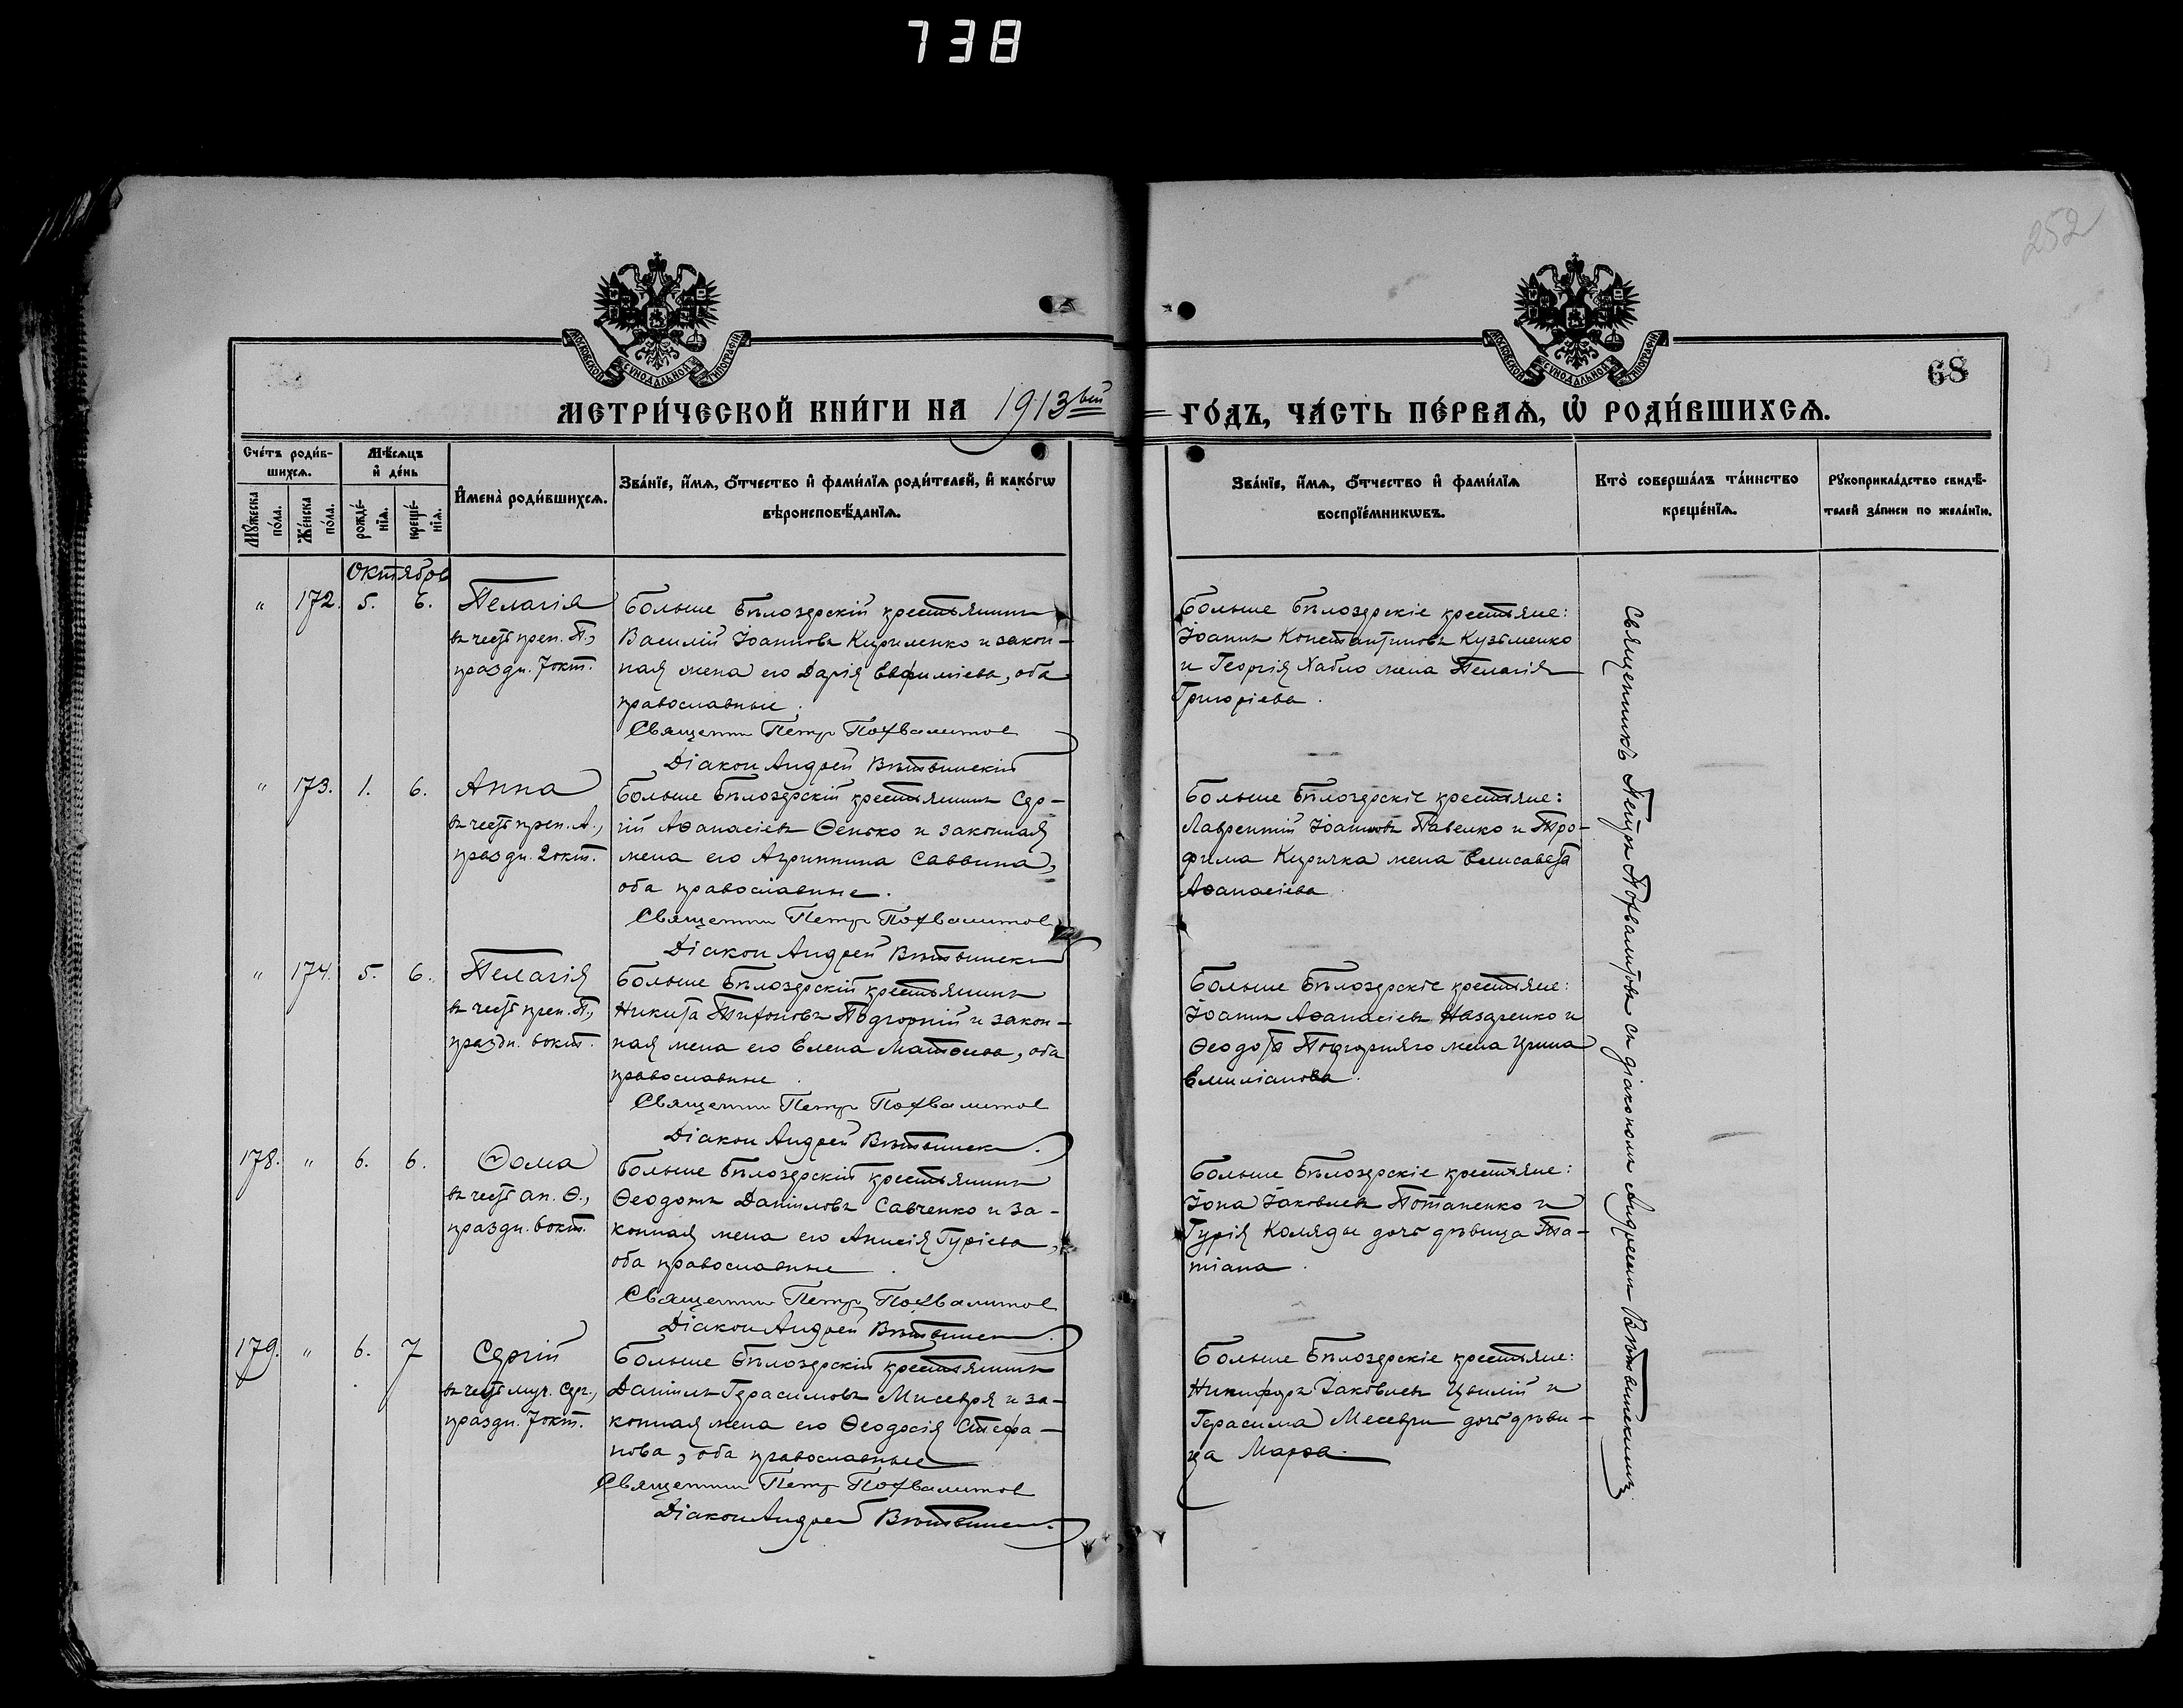 738
252
МОСКОВСКОЙ СѴНОДАЛЬНОЙ ТИПОГРАФІИ
МОСКОВСКОЙ СѴНОДАЛЬНОЙ ТИПОГРАФІИ
68
МЕТРИ́ЧЕСКОЙ КНИ́ГИ НА 1913ый
ГО́ДЪ, ЧА́СТЬ ПЕ́РВАѦ, Ѡ РОДИ́ВШИХСѦ.
Сче́тъ роди́в-
шихсѧ.
Мꙋ́жеска
по́ла.
Же́нска
по́ла.
Мѣ́сѧцъ
и҆ де́нь
рожде́-
нїѧ.
креще́-
нїѧ.
И҆мена̀ роди́вшихсѧ.
Зва́нїе, и҆́мѧ, ѻ҆́тчество и҆ фами́лїѧ роди́телей, и҆ како́гѡ
вѣроисповѣ́данїѧ.
Зва́нїе, и҆́мѧ, ѻ҆́тчество и҆ фами́лїѧ
воспрїе́мникѡвъ.
Кто̀ соверша́лъ та́инство
креще́нїѧ.
Рꙋкоприкла́дство свидѣ́-
телей за́писи по жела́нїю.
Октябрь
" 172. 5. 6. Пелагія
въ честь преп. П.,
праздн. 7 окт.
Больше Бѣлозерскій крестьянинъ
Василій Іоанновъ Кириленко и закон-
ная жена его Дарія Евфиміева, оба
православные.
Священни Петръ Похвалитов
Діакон Андрей Витвинскій
Больше Бѣлозерскіе крестьяне:
Іоаннъ Константиновъ Кузьменко
и Георгія Хабло жена Пелагія
Григоріева.
" 173. 1. 6. Анна
въ честь преп. А.,
праздн. 2 окт.
Больше Бѣлозерскій крестьянинъ Сер-
гій Аѳанасіевъ Ѳенько и законная
жена его Агриппина Саввина,
оба православные.
Священни Петръ Похвалитов
Діакон Андрей Витвинск
Больше Бѣлозерскіе крестьяне:
Лаврентій Іоанновъ Павенко и Тро-
фима Киричка жена Елисавета
Аѳанасіева.
" 174. 5. 6. Пелагія
въ честь преп. П.,
праздн. 8 окт.
Больше Бѣлозерскій крестьянинъ
Никита Тихоновъ Подгорній и закон-
ная жена его Елена Матѳеева, оба
православные.
Священни Петръ Похвалитов
Діакон Андрей Витвинск.
Больше Бѣлозерскіе крестьяне:
Іоаннъ Аѳанасіевъ Назаренко и
Ѳеодота Подгорняго жена Ирина
Емиліанова.
178. " 6. 6. Ѳома
въ честь ап. Ѳ.,
праздн. 6 окт.
Больше Бѣлозерскій крестьянинъ
Ѳеодотъ Даніиловъ Савченко и за-
конная жена его Анисія Гуріева,
оба православные.
Священни Петръ Похвалитов
Діакон Андрей Витвинск.
Больше Бѣлозерскіе крестьяне:
Іона Іаковлевъ Потапенко и
Гурія Коляды дочь дѣвица Та-
тіана.
179. " 6. 7 Сергій
въ честь муч. Серг.,
праздн. 7 окт.
Больше Бѣлозерскій крестьянинъ
Даніилъ Герасимовъ Мисевря и за-
конная жена его Ѳеодосія Стефа-
нова, оба православные
Священни Петр Похвалитов
Діакон Андрей Витвинск.
Больше Бѣлозерскіе крестьяне:
Никифоръ Іаковлевъ Цвилій и
Герасима Месеври дочь дѣви-
ца Марѳа.
Священникъ Петръ Похвалитовъ съ діакономъ Андреемъ Витвинскимъ